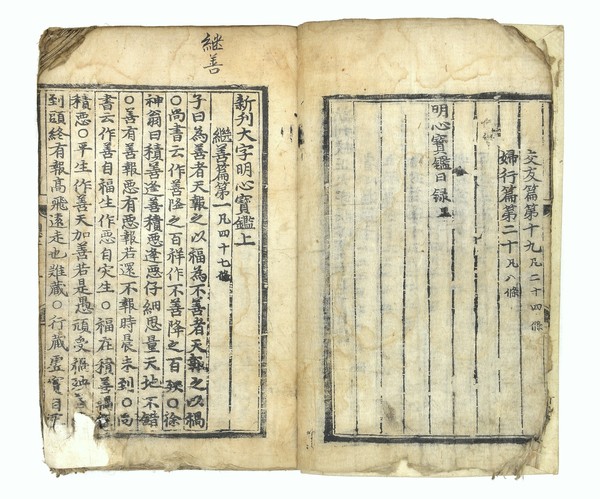 交友篇第十九 凡二十四條
婦行篇第二十 凡八條
明心寶鑑目録 畢
繼善
新刋大字明心寶鑑上
繼善篇第一 凡四十七條
子曰為善者天報之以福為不善者天報之以禍
○尚書云作善降之百祥作不善降之百殃○徐
神翁曰積善逢善積惡逢惡仔細思量天地不錯
○善有善報惡有惡報若還不報時晨未到○尚
書云作善自福生作惡自灾生○福在積善禍在
積惡○平生作善天加善若是愚頑受禍殃善
到頭終有報高飛遠走也難藏○行藏虛實自